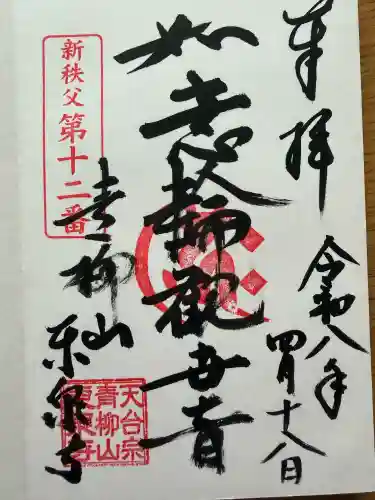 奉拝
令和八年
四月十八日
如意輪観世音
新秩父
第十二番
青柳山
東泉寺
天台宗
青柳山
東泉寺